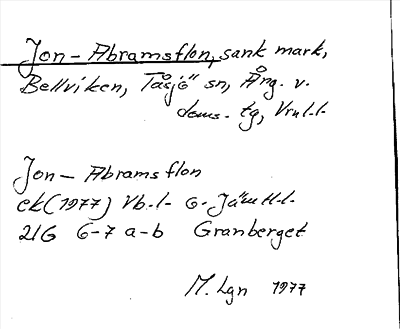 Jon-Abramsflon, sank mark,
Bellviken, Tåsjö sn, Ång. v.
doms. tg, Vrnl.l.
Jon- Abramsflon
ek(1977) Vb.l- o. Jämtl.l.
21G 6-7 a-b Granberget
M. Lgn 1977